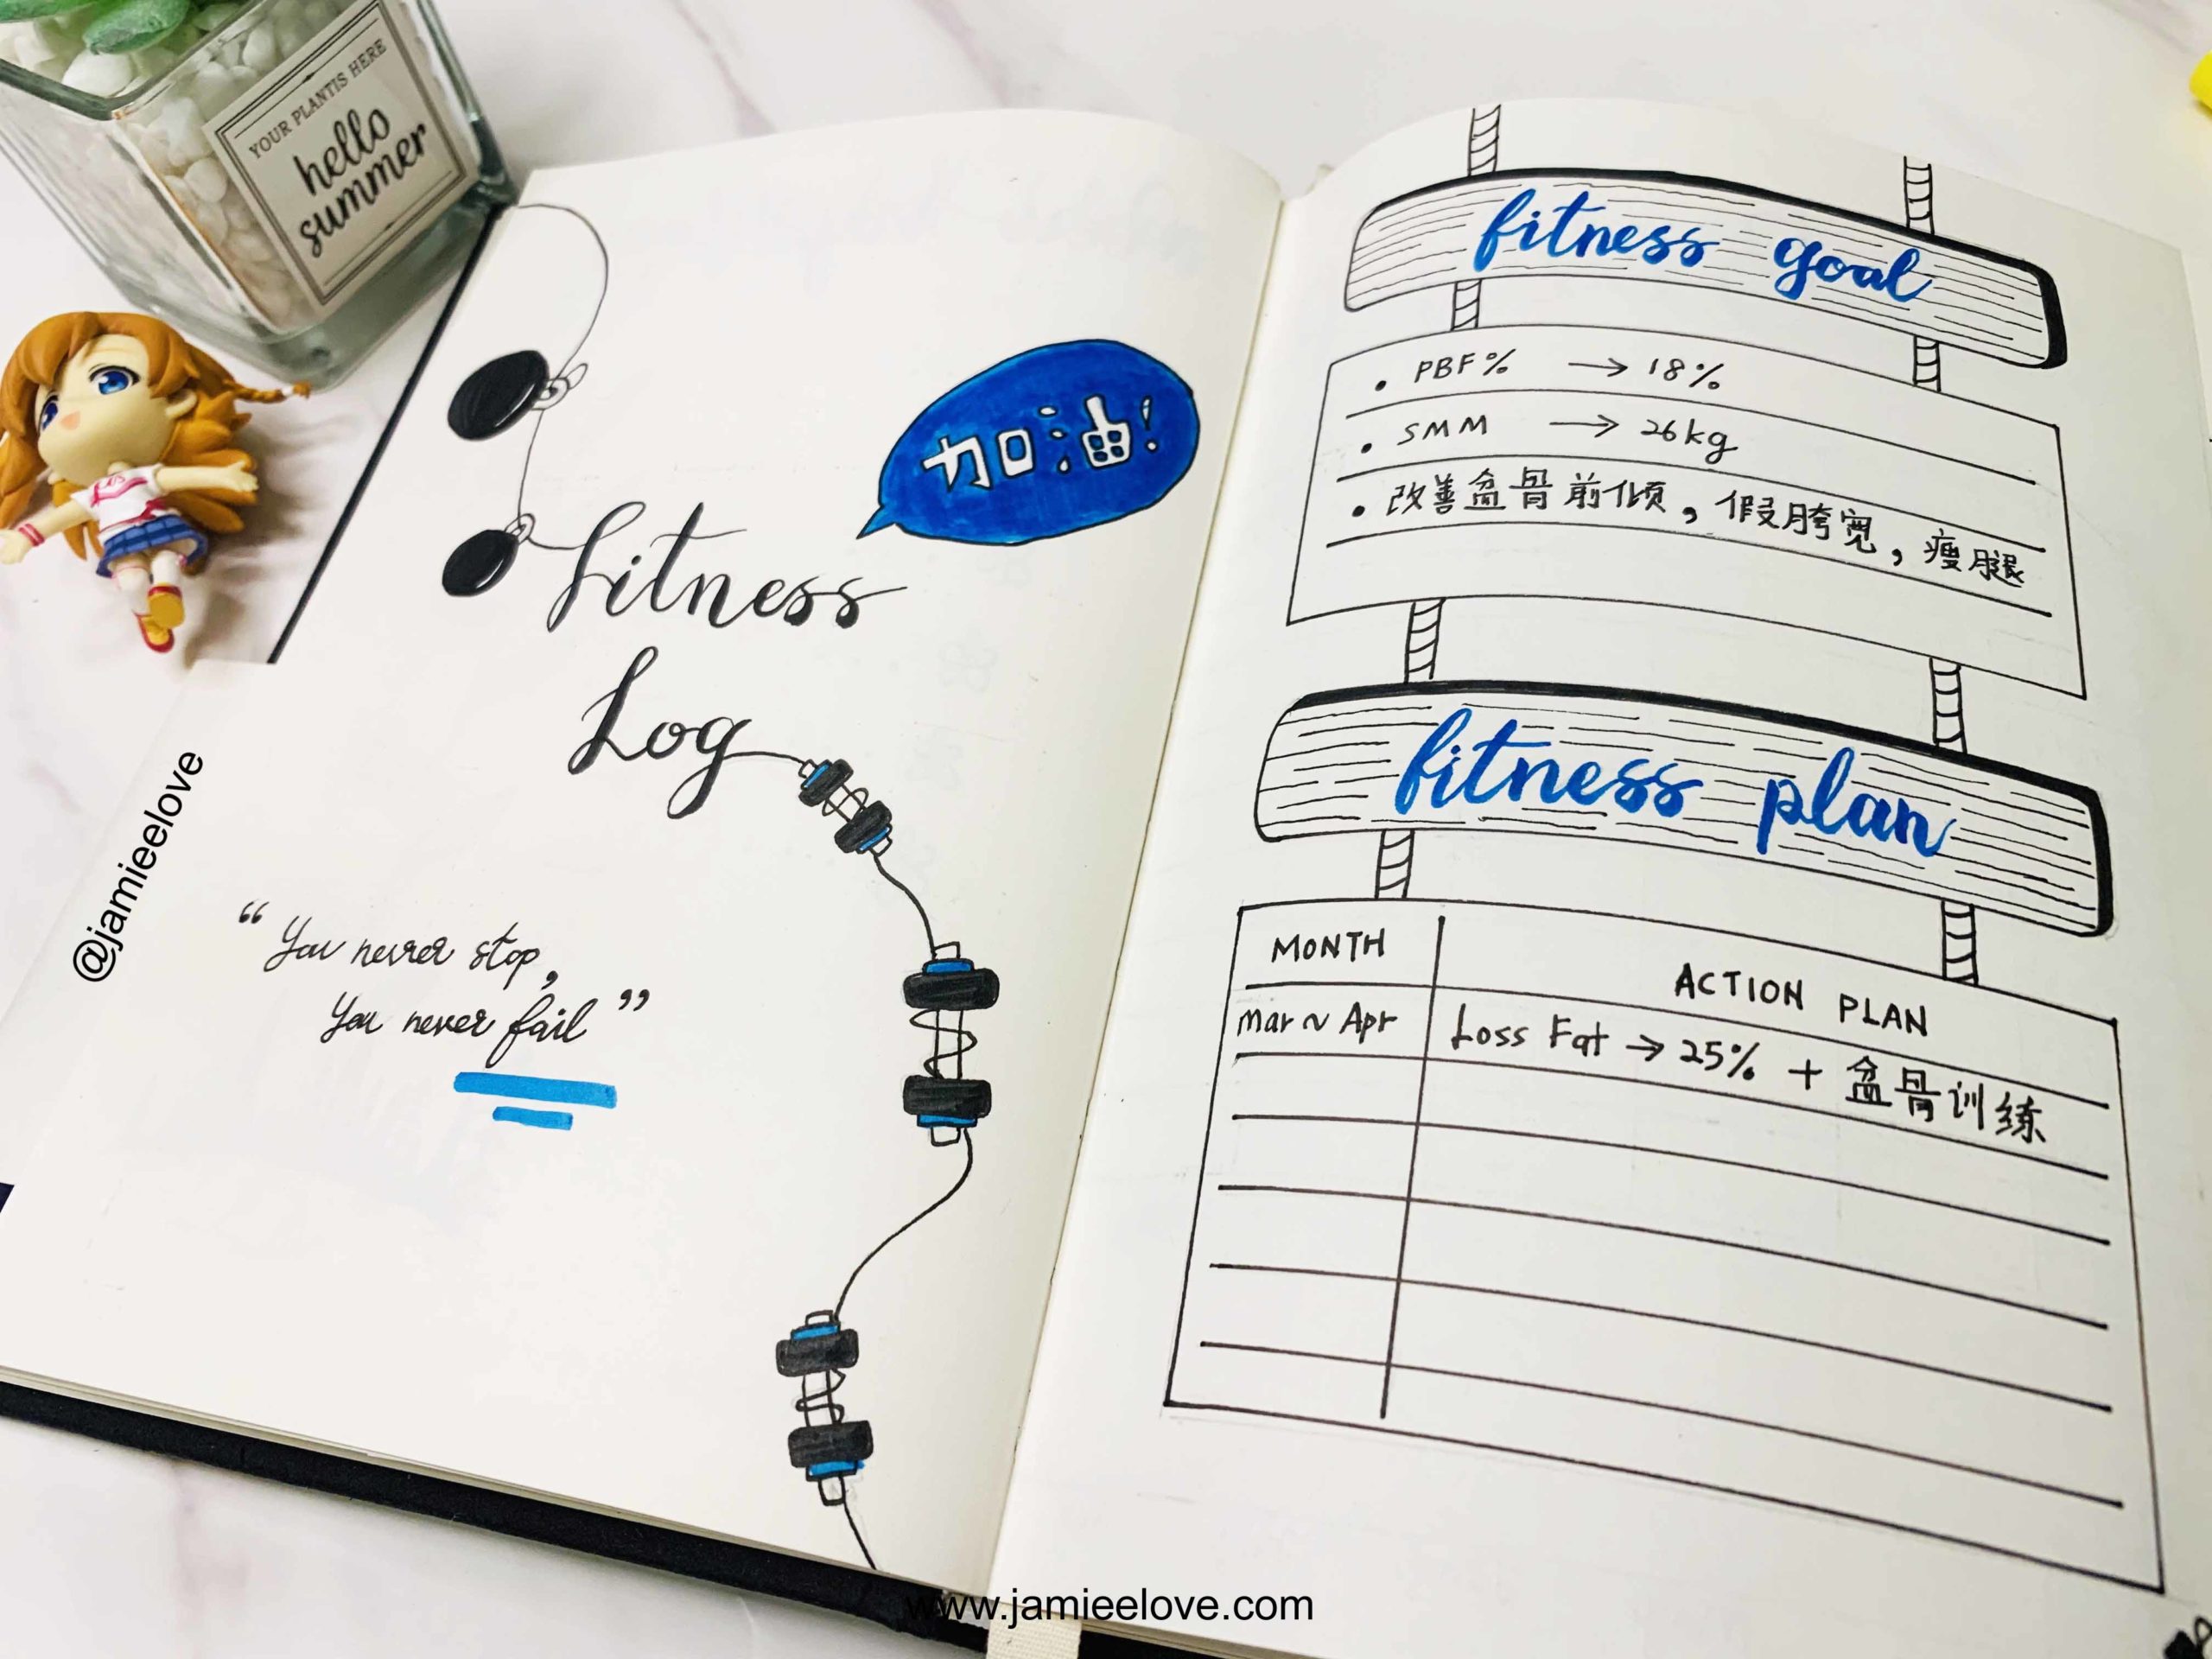 YOUR PLANT IS HERE
hello
summer
@jamieelove
加油!
Fitness
Log
“ You never stop,
You never fail ”
fitness goal
• PBF% → 18%
• SMM → 26kg
• 改善盆骨前倾，假胯宽，瘦腿
fitness plan
MONTH ACTION PLAN
Mar ~ Apr Loss Fat → 25% + 盆骨训练
www.jamieelove.com